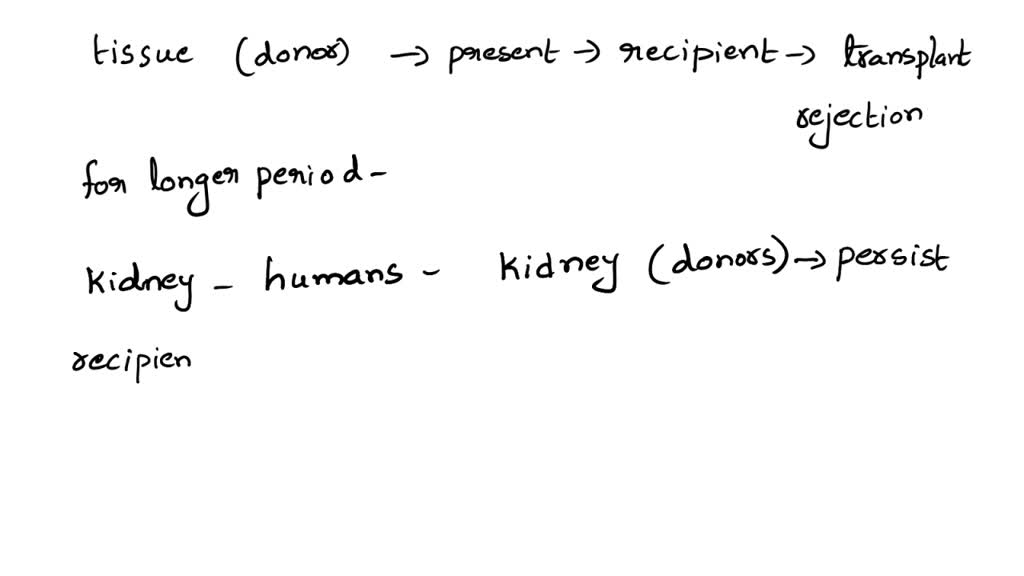 tissue (donor) → present → recipient → transplant
rejection
for longer period -
kidney - humans - kidney (donors) → persist
recipien